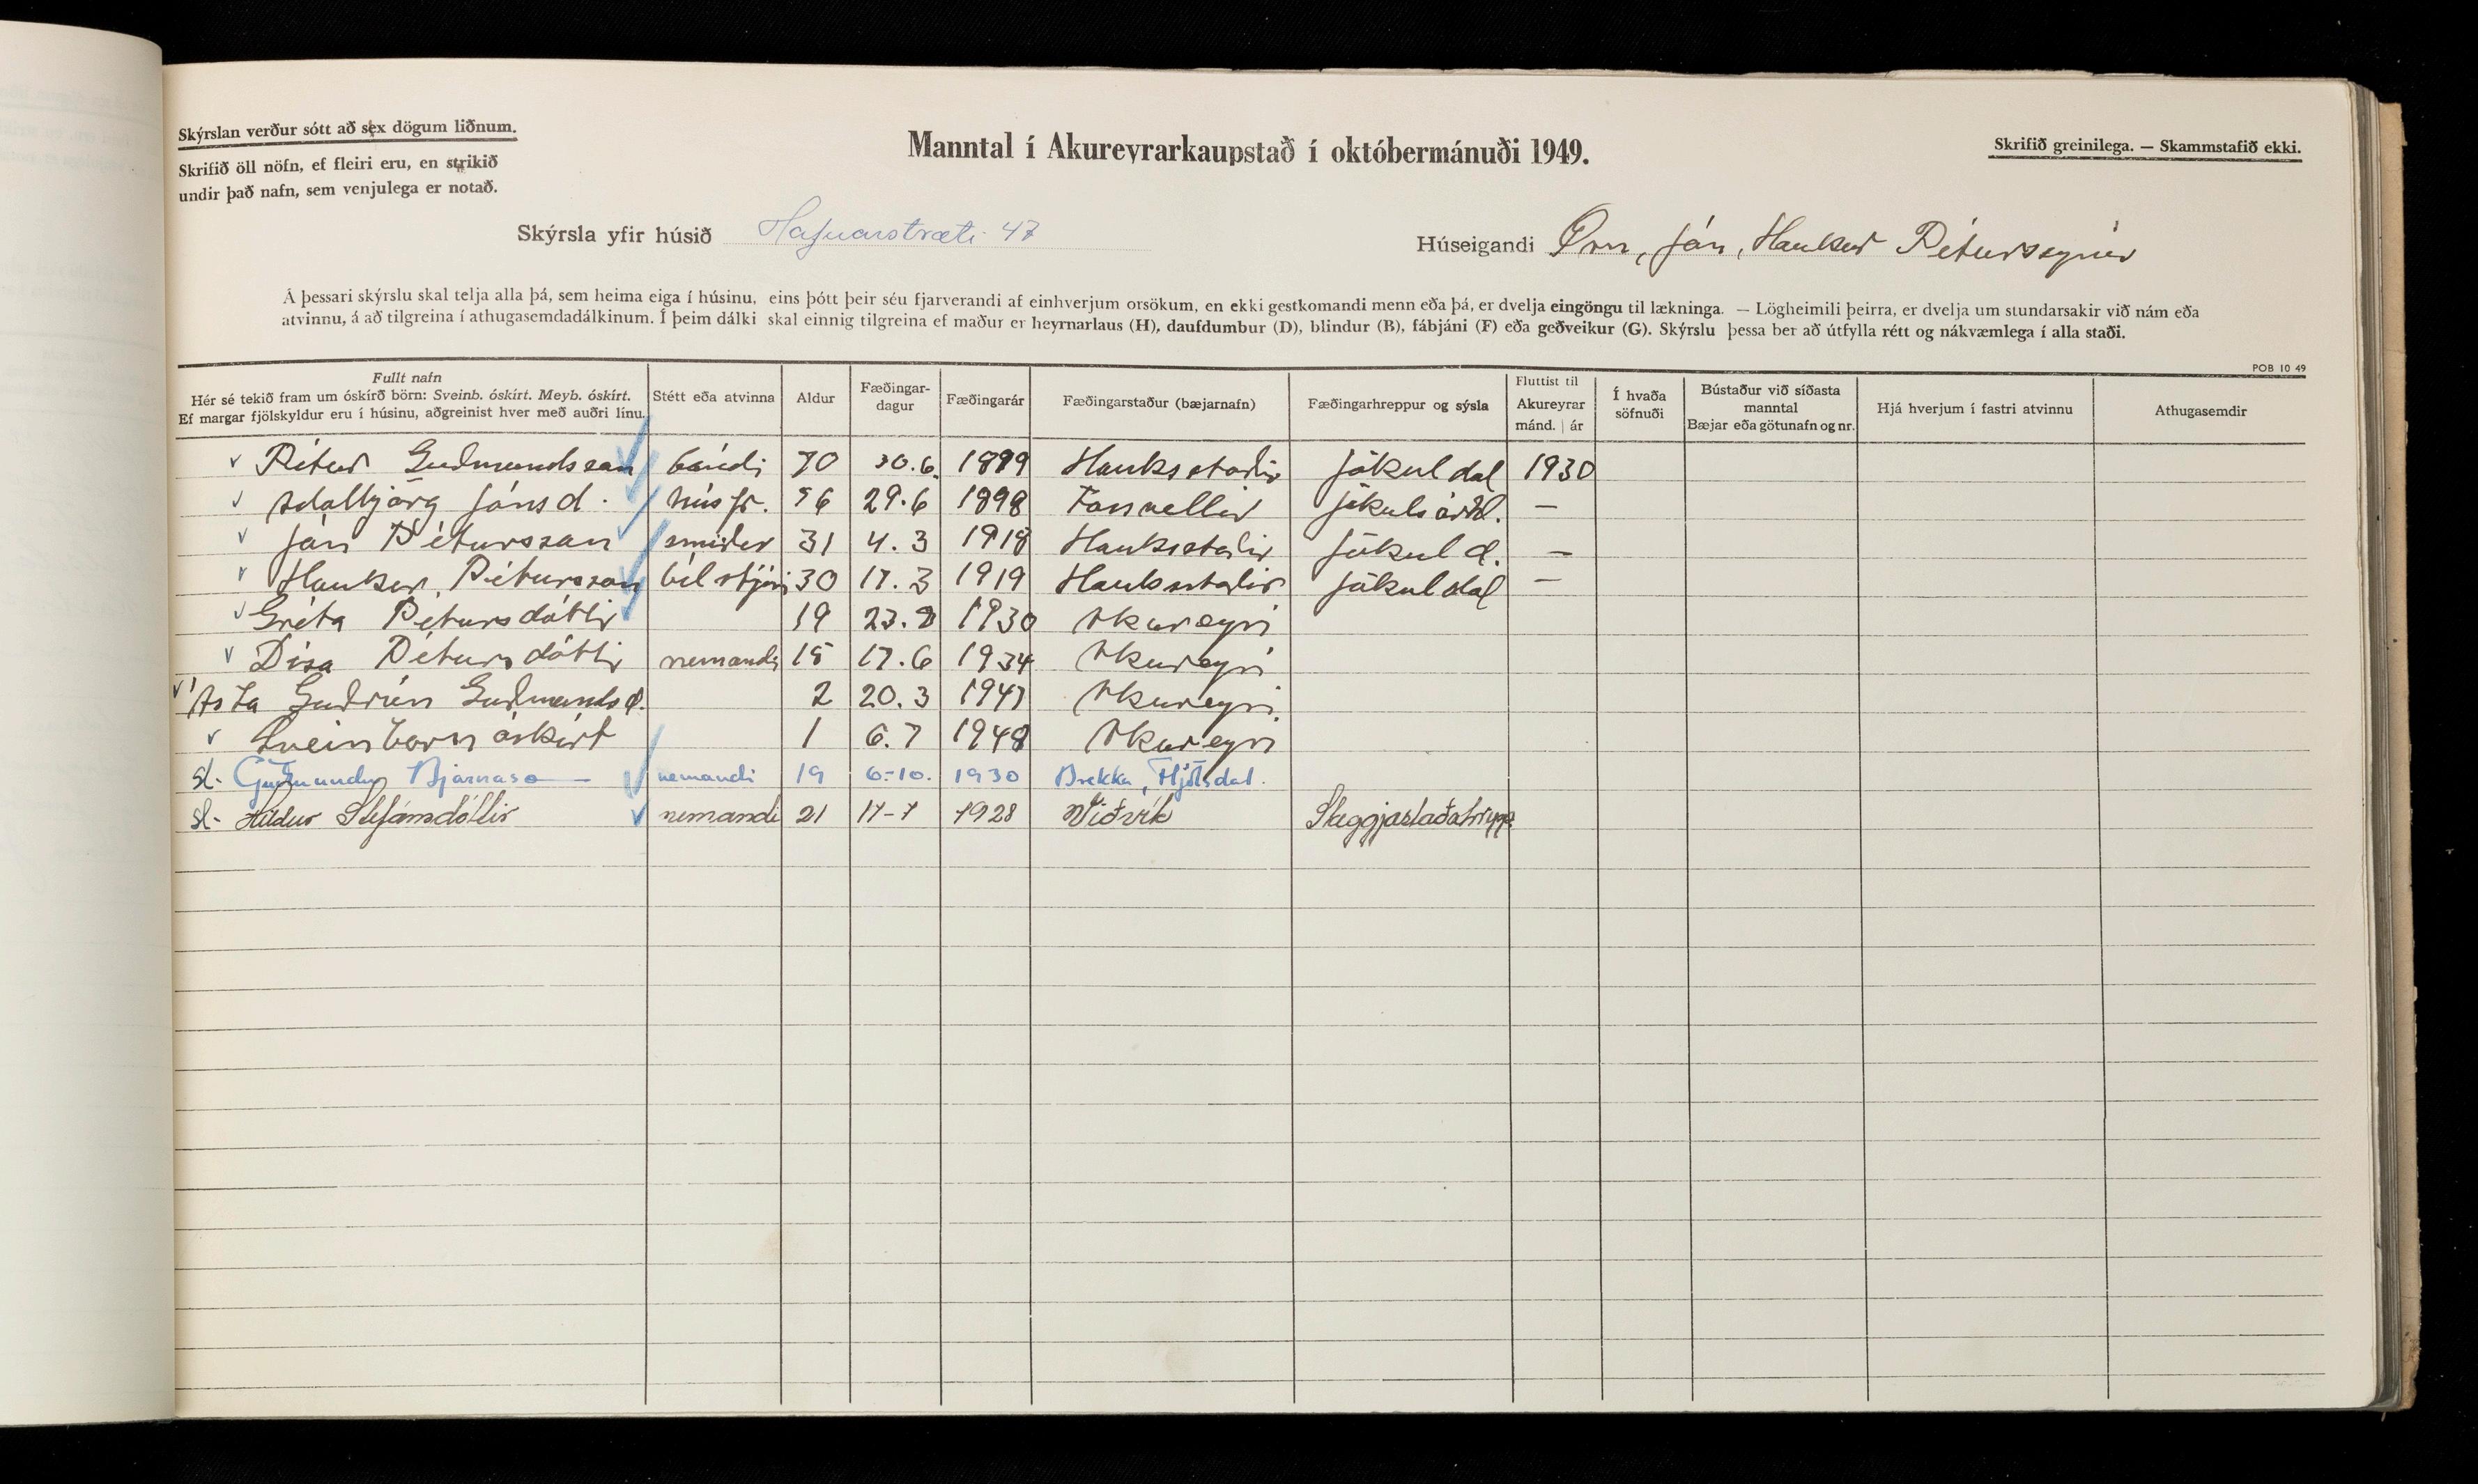 Skýrslan verður sótt að sex dögum liðnum.
Skrifið öll nöfn, ef fleiri eru, en strikið
undir það nafn, sem venjulega er notað.
Manntal í Akureyrarkaupstað í októbermánuði 1949.
Skrifið greinilega. — Skammstafið ekki.
Skýrsla yfir húsið Hafnarstræti 47
Húseigandi Örn, Jón, Haukur Péturssynir
Á þessari skýrslu skal telja alla þá, sem heima eiga í húsinu, eins þótt þeir séu fjarverandi af einhverjum orsökum, en ekki gestkomandi menn eða þá, er dvelja eingöngu til lækninga. — Lögheimili þeirra, er dvelja um stundarsakir við nám eða
atvinnu, á að tilgreina í athugasemdadálkinum. Í þeim dálki skal einnig tilgreina ef maður er heyrnarlaus (H), daufdumbur (D), blindur (B), fábjáni (F) eða geðveikur (G). Skýrslu þessa ber að útfylla rétt og nákvæmlega í alla staði.
POB 10 49
Fullt nafn
Hér sé tekið fram um óskírð börn: Sveinb. óskírt. Meyb. óskírt.
Ef margar fjölskyldur eru í húsinu, aðgreinist hver með auðri línu.
Stétt eða atvinna
Aldur
Fæðingar-
dagur
Fæðingarár
Fæðingarstaður (bæjarnafn)
Fæðingarhreppur og sýsla
Fluttist til
Akureyrar
mánd. | ár
Í hvaða
söfnuði
Bústaður við síðasta
manntal
Bæjar eða götunafn og nr.
Hjá hverjum í fastri atvinnu
Athugasemdir
Pétur Guðmundsson bóndi 70 30.6. Hauksstaðir Jökuldal 1930
Aðalbjörg Jónsd. húsfr. 29.6 1898 Fossvellir —
Jón Pétursson smiður 31 4.3 1918 Hauksstaðir Jökuld. —
Haukur Pétursson bílstjóri 30 17.3 1919 Hauksstaðir Jökuldal —
Gréta Pétursdóttir 19 1930 Akureyri
Dísa Pétursdóttir nemandi 15 17.6 1934 Akureyri
Ásta Guðrún Guðmundsd. 2 20.3 1947 Akureyri
Sveinbarn óskírt 1 6.7 1948 Akureyri
sl- Guðmundur Bjarnaso— nemandi 19 6-10. 1930 Brekka, Fljótsdal.
sl- Hildur Stefánsdóttir nemandi 21 17-7 1928 Viðvík